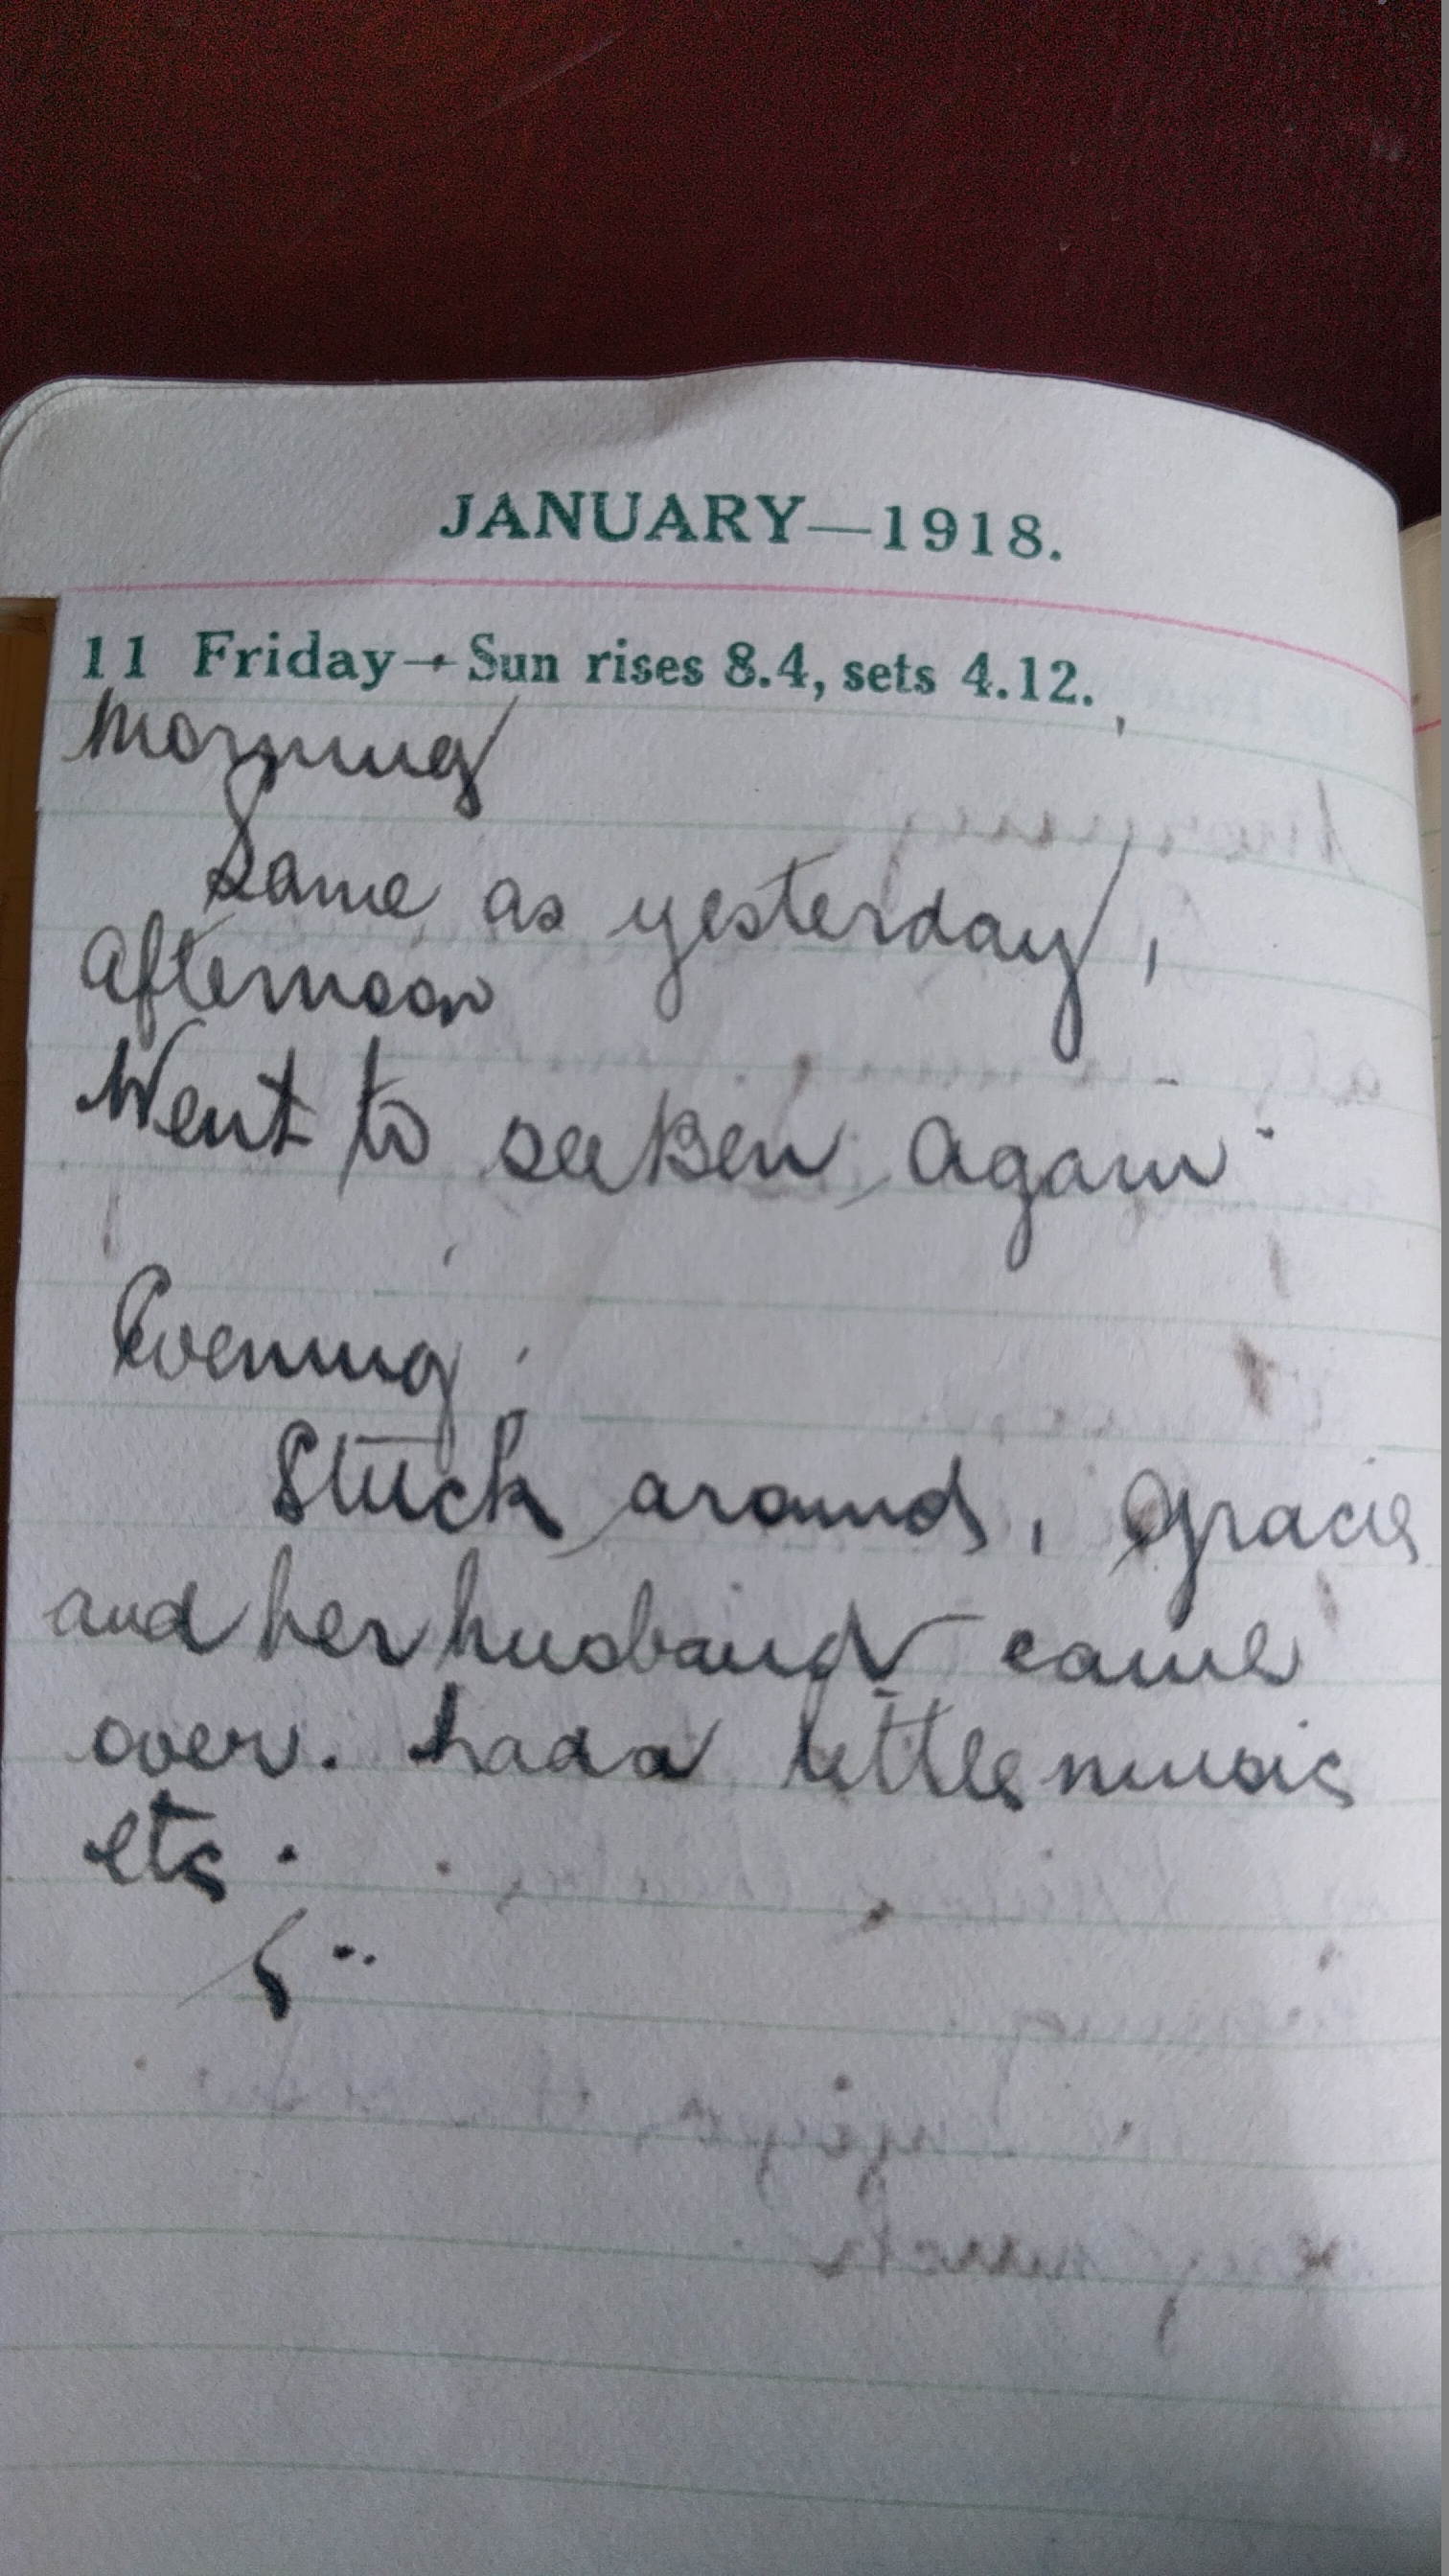 JANUARY—1918.
11 Friday—Sun rises 8.4, sets 4.12.
Morning
Same as yesterday,
Afternoon
Went to see Ben again
Evening
Stuck around, Gracie
and her husband came
over. had a little music
etc.